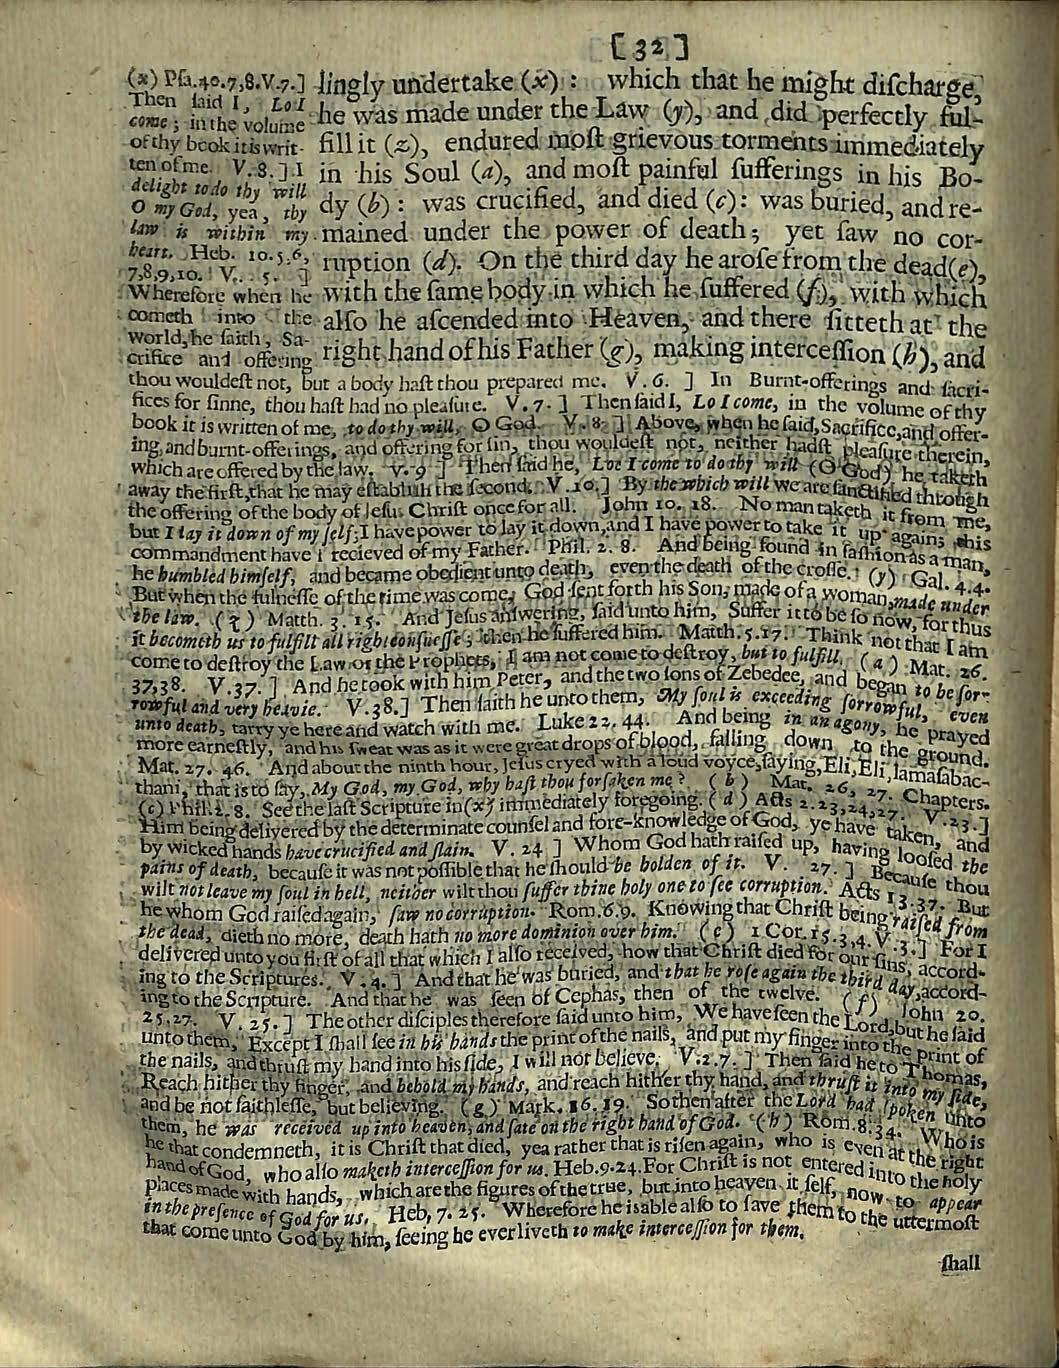 [ 32 ]
lingly undertake (x) : which that he might diſcharge,
he was made under the Law (y), and did perfectly ful-
fill it (z), endured moſt grievous torments immediately
in his Soul (a), and moſt painful ſufferings in his Bo-
dy (b) : was crucified, and died (c) : was buried, and re-
mained under the power of death ; yet ſaw no cor-
ruption (d). On the third day he aroſe from the dead (e),
with the ſame body in which he ſuffered (f), with which
alſo he aſcended into Heaven, and there ſitteth at the
right hand of his Father (g), making interceſſion (h), and
(x) Pſa.40.7,8.V.7.]
Then ſaid I, Lo I
come ; in the volume
of thy book it is writ-
ten of me. V. 8. ] I
delight to do thy will
O my God, yea, thy
law is within my
heart. Heb. 10.5,6,
7,8,9,10. V. 5. ]
Wherefore when he
cometh into the
world, he ſaith, Sa-
crifice and offering
thou wouldeſt not, but a body haſt thou prepared me. V. 6. ] In Burnt-offerings and ſacri-
fices for ſinne, thou haſt had no pleaſure. V. 7. ] Then ſaid I, Lo I come, in the volume of thy
book it is written of me, to do thy will, O God. V. 8 ] Above, when he ſaid, Sacrifice, and offer-
ing, and burnt-offerings, and offering for ſin, thou wouldeſt not, neither hadſt pleaſure therein,
which are offered by the law. V. 9 ] Then ſaid he, Loe I come to do thy will (O God) he taketh
away the firſt, that he may eſtabliſh the ſecond. V. 10. ] By the which will we are ſanctified through
the offering of the body of Jeſus Chriſt once for all. John 10. 18. No man taketh it from me,
but I lay it down of my ſelf; I have power to lay it down, and I have power to take it up again; this
commandment have I recieved of my Father. Phil. 2. 8. And being found in faſhion as a man,
he humbled himſelf, and became obedient unto death, even the death of the croſſe. (y) Gal. 4.4.
But when the fulneſſe of the time was come, God ſent forth his Son, made of a woman, made under
the law. (z) Matth. 3. 15. And Jeſus anſwering, ſaid unto him, Suffer it to be ſo now, for thus
it becometh us to fulfill all righteouſneſſe ; then he ſuffered him. Matth. 5.17. Think not that I am
come to deſtroy the Law or the Prophets, I am not come to deſtroy, but to fulfill. (a) Mat. 26.
37,38. V.37. ] And he took with him Peter, and the two ſons of Zebedee, and began to be ſor-
rowful and very heavie. V.38.] Then ſaith he unto them, My ſoul is exceeding ſorrowful, even
unto death, tarry ye here and watch with me. Luke 22. 44. And being in an agony, he prayed
more earneſtly, and his ſweat was as it were great drops of blood, falling down to the ground.
Mat. 27. 46. And about the ninth hour, Jeſus cryed with a loud voyce, ſaying, Eli, Eli, lamaſabac-
thani, that is to ſay, My God, my God, why haſt thou forſaken me ? (b) Mat. 26, 27. Chapters.
(c) Phil. 2. 8. See the laſt Scripture in (x) immediately foregoing. (d) Acts 2.23,24,27. V.23.]
Him being delivered by the determinate counſel and fore-knowledge of God, ye have taken, and
by wicked hands have crucified and ſlain. V. 24 ] Whom God hath raiſed up, having looſed the
pains of death, becauſe it was not poſſible that he ſhould be holden of it. V. 27. ] Becauſe thou
wilt not leave my ſoul in hell, neither wilt thou ſuffer thine holy one to ſee corruption. Acts 13.37. But
he whom God raiſed again, ſaw no corruption. Rom. 6. 9. Knowing that Chriſt being raiſed from
the dead, dieth no more, death hath no more dominion over him. (e) 1 Cor. 15. 3,4. V. 3. ] For I
delivered unto you firſt of all that which I alſo received, how that Chriſt died for our ſins, accord-
ing to the Scriptures. V. 4. ] And that he was buried, and that he roſe again the third day, accord-
ing to the Scripture. And that he was ſeen of Cephas, then of the twelve. (f) John 20.
25.27. V. 25. ] The other diſciples therefore ſaid unto him, We have ſeen the Lord, but he ſaid
unto them, Except I ſhall ſee in his hands the print of the nails, and put my finger into the print of
the nails, and thruſt my hand into his ſide, I will not believe. V. 27. ] Then ſaid he to Thomas,
Reach hither thy finger, and behold my hands, and reach hither thy hand, and thruſt it into my ſide,
and be not faithleſſe, but believing. (g) Mark. 16. 19. So then after the Lord had ſpoken unto
them, he was received up into heaven, and ſate on the right hand of God. (h) Rom. 8. 34. Who is
he that condemneth, it is Chriſt that died, yea rather that is riſen again, who is even at the right
hand of God, who alſo maketh interceſſion for us. Heb. 9.24. For Chriſt is not entered into the holy
places made with hands, which are the figures of the true, but into heaven it ſelf, now to appear
in the preſence of God for us. Heb, 7. 25. Wherefore he is able alſo to ſave them to the uttermoſt
that come unto God by him, ſeeing he ever liveth to make interceſſion for them.
ſhall